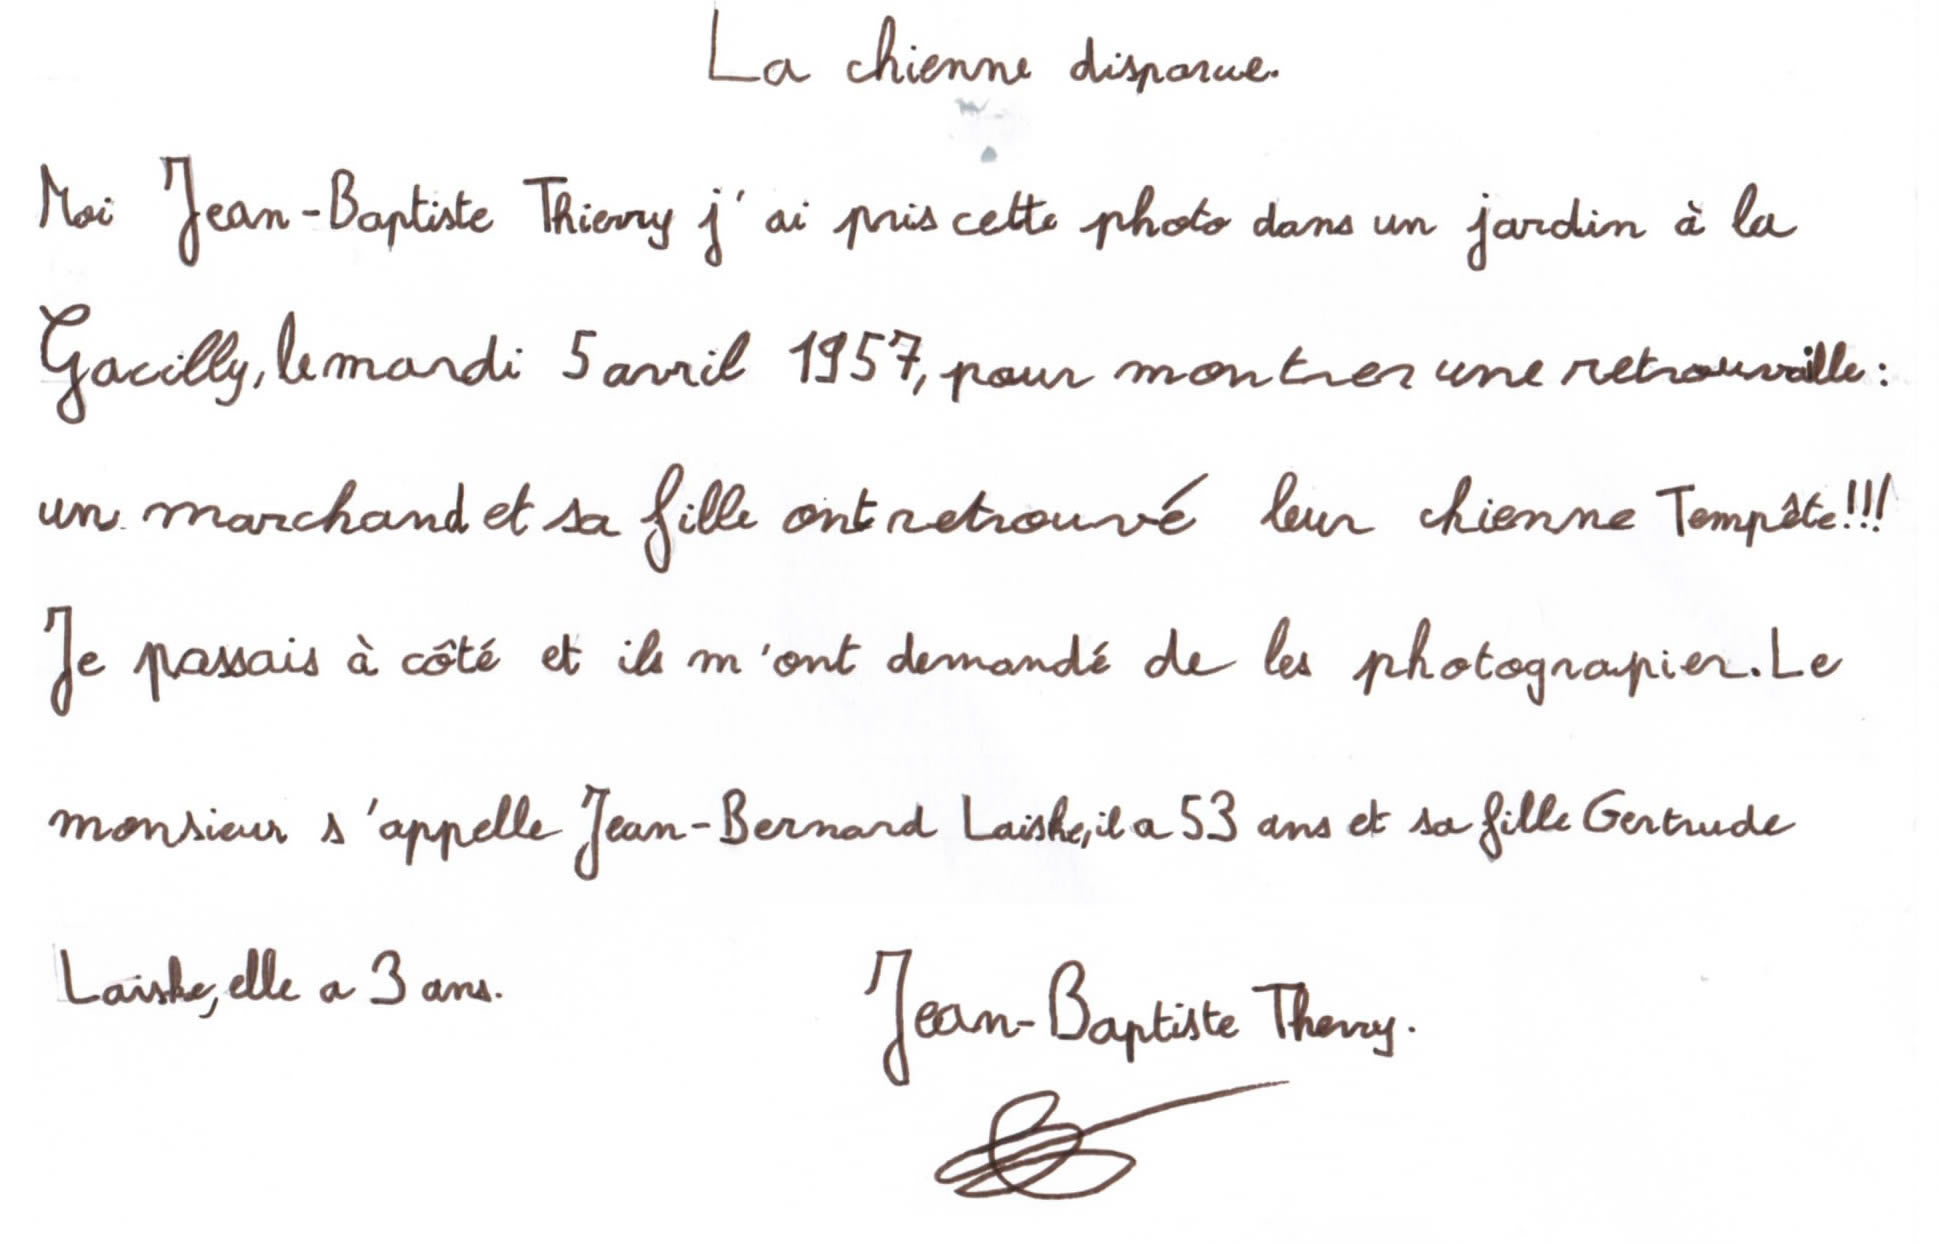 La chienne disparue.
Moi Jean-Baptiste Thierry j'ai pris cette photo dans un jardin à la
Gacilly, le mardi 5 avril 1957, pour montrer une retrouvaille :
un marchand et sa fille ont retrouvé leur chienne Tempête!!!
Je passais à côté et ils m'ont demandé de les photograpier. Le
monsieur s'appelle Jean-Bernard Laiske, il a 53 ans et sa fille Gertrude
Laiske, elle a 3 ans.
Jean-Baptiste Therry.